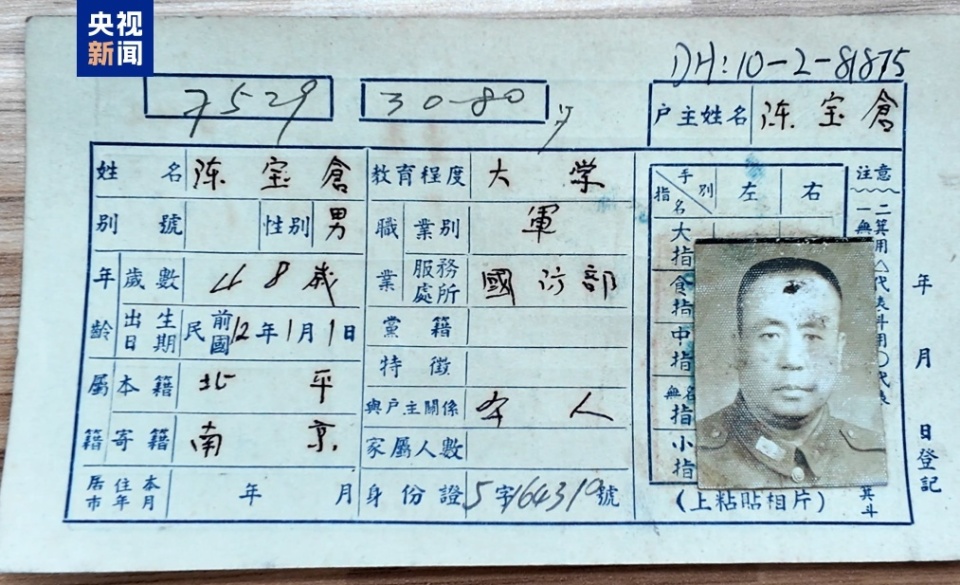 央视
新闻
DH:10-2-81875
7529
30-80
户主姓名 陈宝倉
姓名 陈宝倉 教育程度 大学
别號 性别 男 職業 業别 軍
年龄 歲數 48歲 服務處所 國防部
出生日期 民前國12年1月1日 黨籍
特徵
屬籍 本籍 北平 與戶主關係 本人
寄籍 南京 家屬人數
居住本市年月 年 月 身份證 5字164319號
手别 指名 左 右
大指
食指
中指
無名指
小指
(上粘貼相片)
注意
年 月 日登記